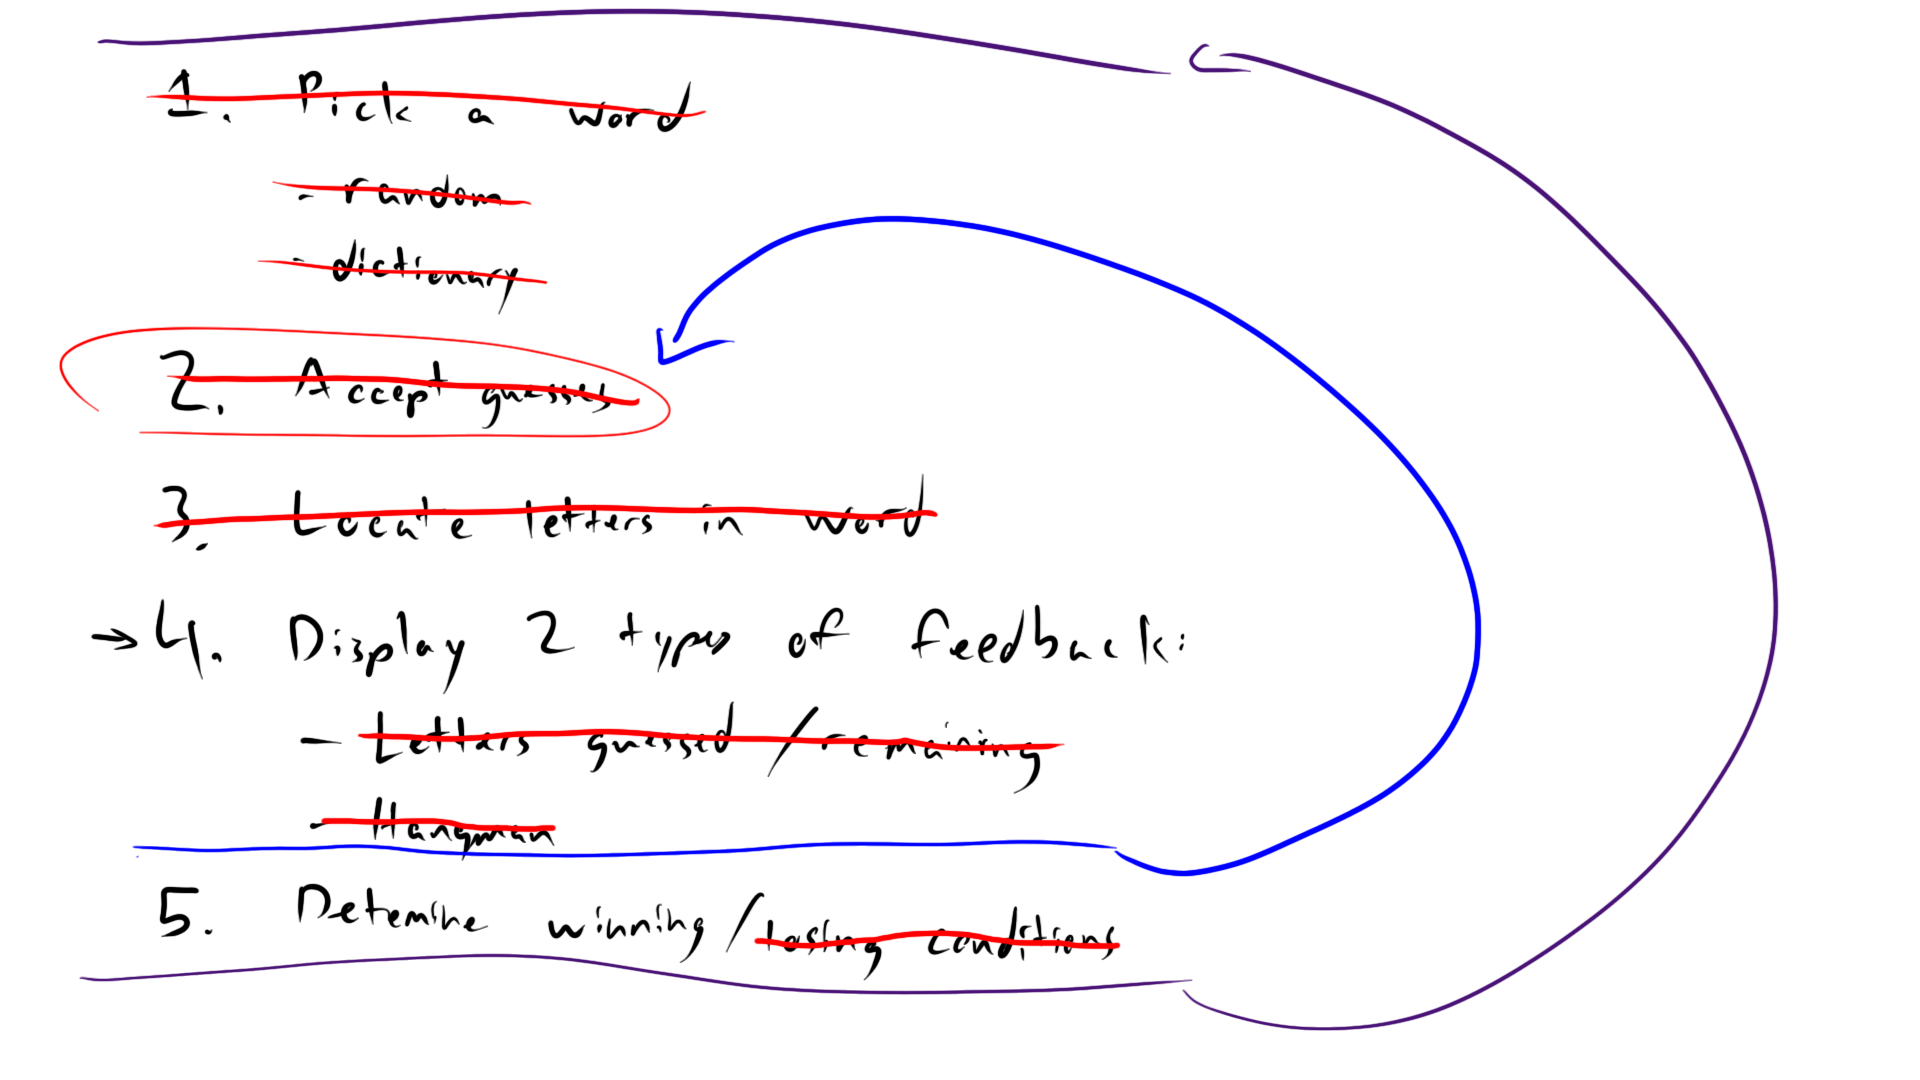 1. Pick a word
- random
- dictionary
2. Accept guesses
3. Locate letters in word
→ 4. Display 2 types of feedback:
- Letters guessed / remaining
- Hangman
5. Detemine winning / losing conditions